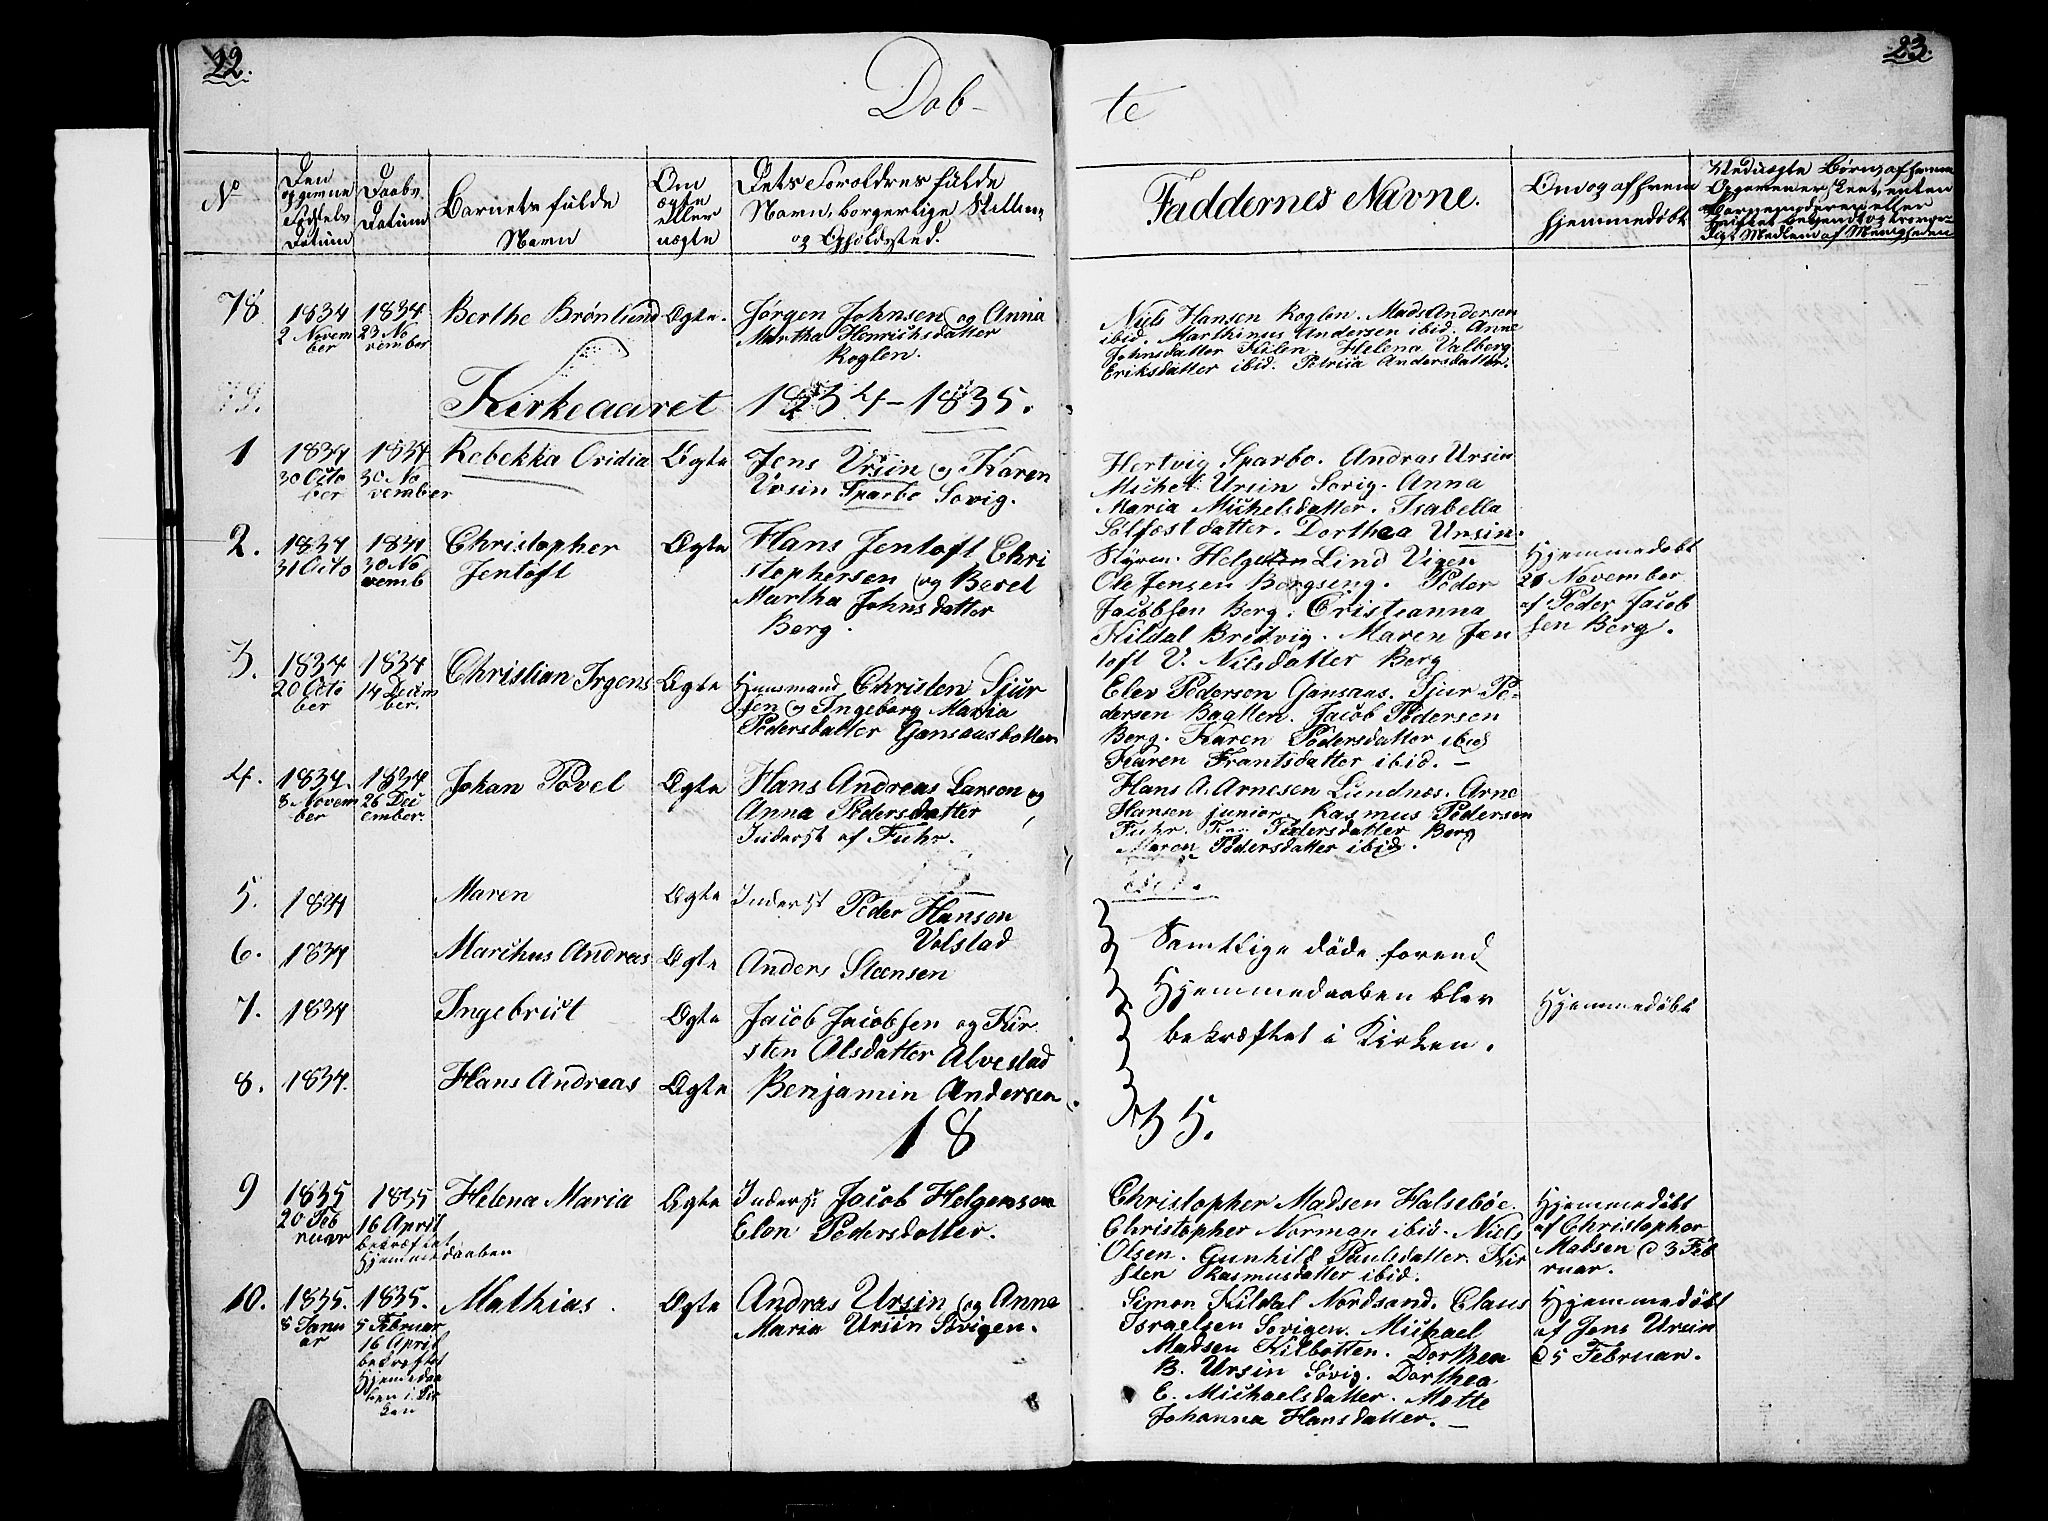 22.
23.
Döb-
te
No
Den
opgivne
Fødsels
Datum
Daabs
Datum
Barnets fulde
Navn
Om
ægte
eller
uægte
Dets Foroldres fulde
Navn, borgerlige Stilling
og Opholdssted.
Faddernes Navne.
Om og af hvem
hjemmedøbt
Ved uægte Børn
78
1834
2 Novem
ber
1834
23 No
vember
Berthe Brönlund
Ægte.
Jørgen Johnsen og Anna
Martha Henrichsdatter
Roglen.
Niels Hansen Roglen. Mads Andersen
ibid. Marthinus Andersen ibid. Anne
Johnsdatter Kilen. Helena Valberg
Eriksdatter ibid. Petriia Andersdatter.
79.
Kirkeaaret 1834-1835.
1
1834
30 Octo
ber
1834
30 No
vember
Rebekka Oridia
Ægte
Jens Ursin og Karen
Ursin Sparbo Sovig.
Hertvig Sparbo. Andras Ursin
Michel Ursin Sovig. Anna
Maria Michelsdatter. Isabella
Sölfestdatter. Dorthea Ursin.
2.
1834
31 Octo
1834
30 No
vemb
Christopher
Jentoft
Ægte
Hans Jentoft Chri
stophersen og Berel
Martha Johnsdatter
Berg.
Styrm. Helge Lind Vigen
Ole Jensen Bergseng. Peder
Jacobsen Berg. Cristeanna
Kildal Bredvig. Maren Jen
toft V. Nilsdatter Berg
Hjemmedøbt
21 November
af Peder Jacob
sen Berg.
3.
1834
20 Octo
ber
1834
14 Decem
ber.
Christian Irgens
Ægte
Huusmand Christen Sjur
sen og Ingeborg Maria
Pedersdatter Gansaasbotten
Elev Pedersen Gansaas. Sjur Pe-
dersen Botten. Jacob Pedersen
Berg. Karen Pedersdatter ibid
Karen Frantsdatter ibid. -
4.
1834
8 Novem
ber
1834
26 Dec
ember.
Johan Povel
Ægte
Hans Andreas Larsen og
Anna Pedersdatter
Inderst af Fuhr.
Hans A. Arnesen Lundnes. Arne
Hansen junior. Rasmus Pedersen
Fuhr. Pedersdatter Berg
Maren Pedersdatter ibid.
5.
1834
Maren
Ægte
Inderst Peder Hanson
Volstad
6.
1834
Marchus Andreas
Ægte
Anders Steensen
7.
1834
Ingebrict
Ægte
Jacob Jacobsen og Kir
sten Olsdatter Alvestad
8.
1834.
Hans Andreas
Ægte
Benjamin Andersen
Samtlige døde forend
Hjemmedaaben blev
bekræftet i Kirken.
Hjemmedøbt
18
35.
9
1835
20 Feb
ruar
1835
16 April
bekræftet
Hjemmedaaben
Helena Maria
Ægte
Inderst Jacob Helgensen
Elen Pedersdatter.
Christopher Madsen Halseböe.
Christopher Norman ibid. Niels
Olsen. Gunhild Paulsdatter. Kir
sten Rasmusdatter ibid.
Hjemmedøbt
af Christopher
Madsen d 3 Feb
ruar.
10.
1835.
8 Janu
ar
1835.
5 Februar
16 April
bekræftet
Hjemmedaa
ben i Kir
ken
Mathias.
Ægte
Andras Ursin og Anne
Maria Ursin Sövigen.
Simon Kildal Nordsand. Claus
Israelsen Sovigen. Michael
Madsen Kilbotten. Dorthea
B. Ursin Sövig. Dorthea
E. Michaelsdatter. Mette
Johanna Hansdatter. -
Hjemmedøbt
af Jens Ursin
d 5 Februar.